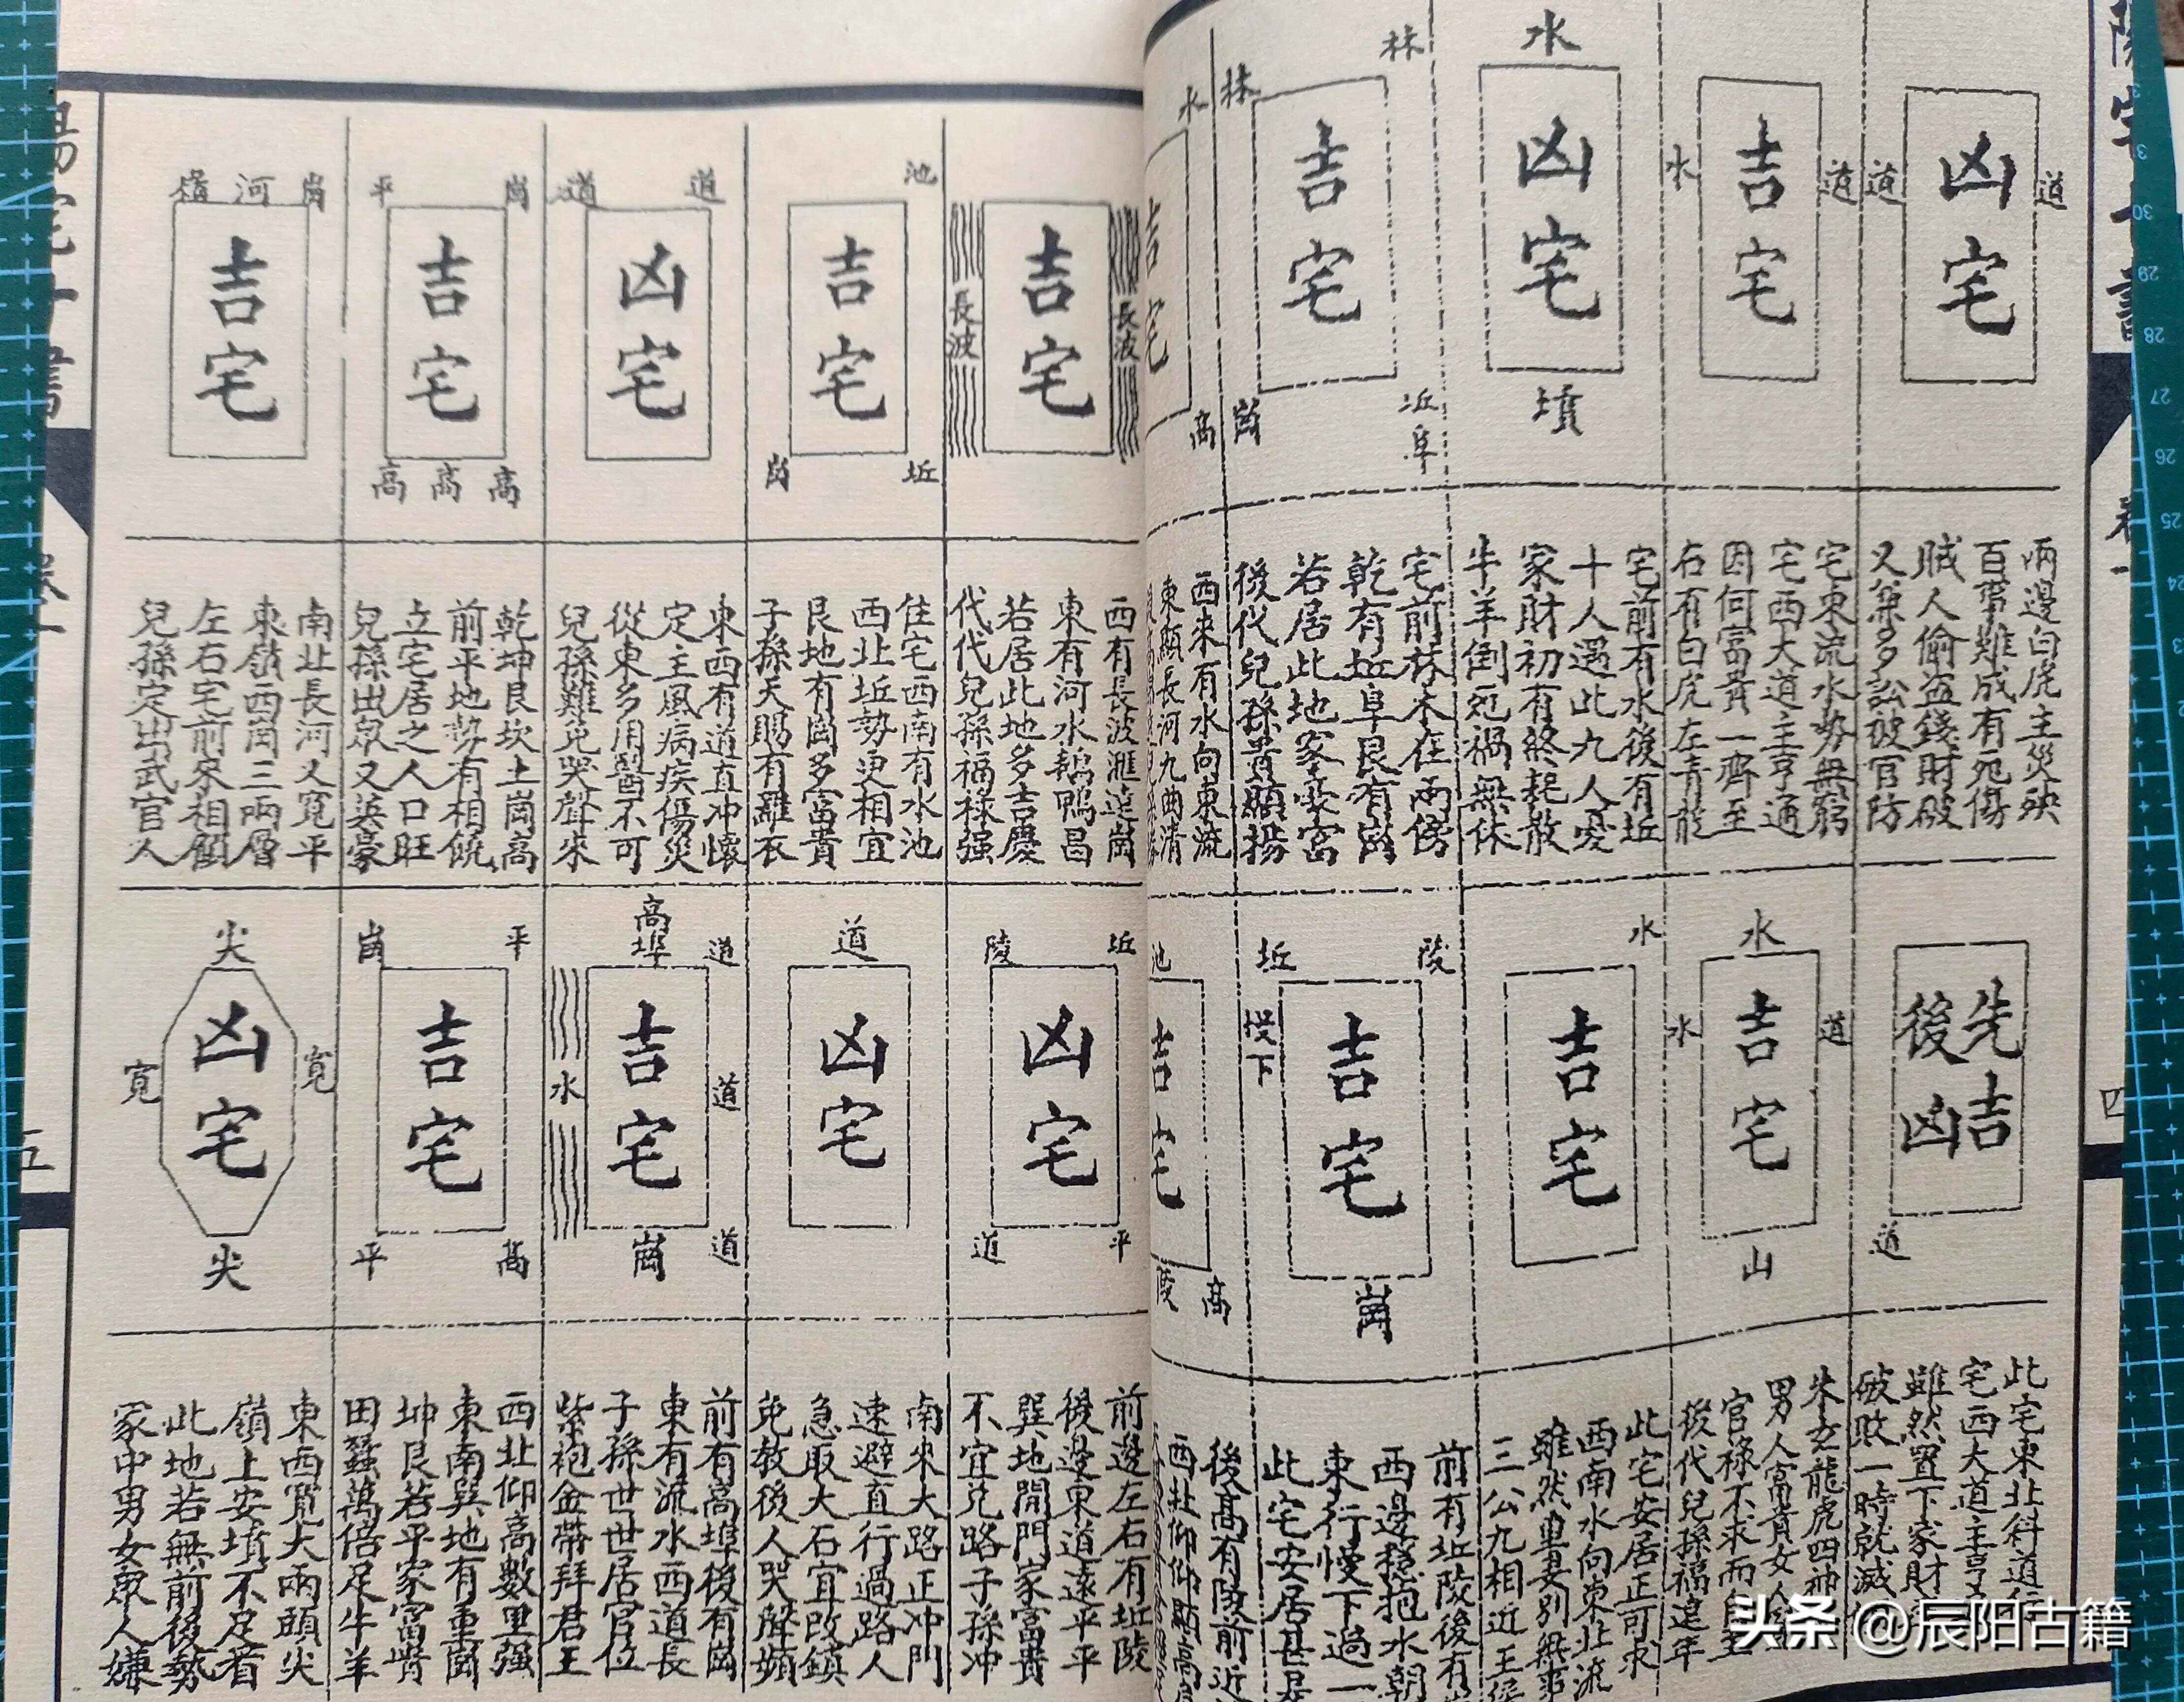 道
凶宅
道
兩邊白虎主災殃
百事難成有死傷
賊人偷盜錢財破
又兼多訟被官防
道
吉宅
水
宅東流水勢無窮
宅西大道主亨通
因何富貴一齊至
右有白虎左青龍
水
凶宅
墳
宅前有水後有坵
十人遇此九人憂
家財初有終耗散
牛羊倒死禍無休
林
林
吉宅
坵阜
崗
宅前林木在兩傍
乾有坵阜艮有崗
若居此地家豪富
後代兒孫貴顯揚
水
吉宅
高
西來有水向東流
東顯長河九曲清
先吉
後凶
道
此宅東北斜道
宅西大道主亨
雖然置下家財
破敗一時就滅
水
道
吉宅
水
山
朱玄龍虎四神
男人富貴女人
官祿不求而自至
後代兒孫福遠年
水
吉宅
此宅安居正可求
西南水向東北流
雖然重妻別無事
三公九相近王侯
陵
坵
吉宅
下
崗
前有坵陵後有
西邊穩抱水朝
東行慢下過一
此宅安居甚
池
吉宅
高
陵
後高有陵前近
長波
吉宅
長波
西有長波滙遠崗
東有河水鵝鴨昌
若居此地多吉慶
代代兒孫福祿强
池
吉宅
坵
崗
住宅西南有水池
西北坵勢更相宜
艮地有崗多富貴
子孫天賜有羅衣
道
道
凶宅
東西有道直冲懷
定主風病疾傷災
從東多用醫不可
兒孫難免哭聲來
崗
平
吉宅
高
高
高
乾坤艮坎土崗高
前平地勢有相饒
立宅居之人口旺
兒孫出眾又英豪
崗
河
嶺
吉宅
南北長河又寬平
東嶺西崗三兩層
左右宅前來相顧
兒孫定出武官人
坵
陵
凶宅
平
道
前邊左右有坵陵
後邊東道遠平平
巽地開門家富貴
不宜兌路子孫冲
道
凶宅
南來大路正冲門
速避直行過路人
急取大石宜改鎮
免教後人哭聲頻
高埠
道
道
吉宅
水
道
崗
前有高埠後有崗
東有流水西道長
子孫世世居官位
紫袍金帶拜君王
平
崗
吉宅
高
平
西北仰高數里强
東南巽地有重崗
坤艮若平家富貴
田蠶萬倍足牛羊
尖
寬
凶宅
寬
尖
東西寬大兩頭尖
嶺上安墳不足看
此地若無前後勢
家中男女眾人嫌
卷一
四
五
头条 @辰阳古籍